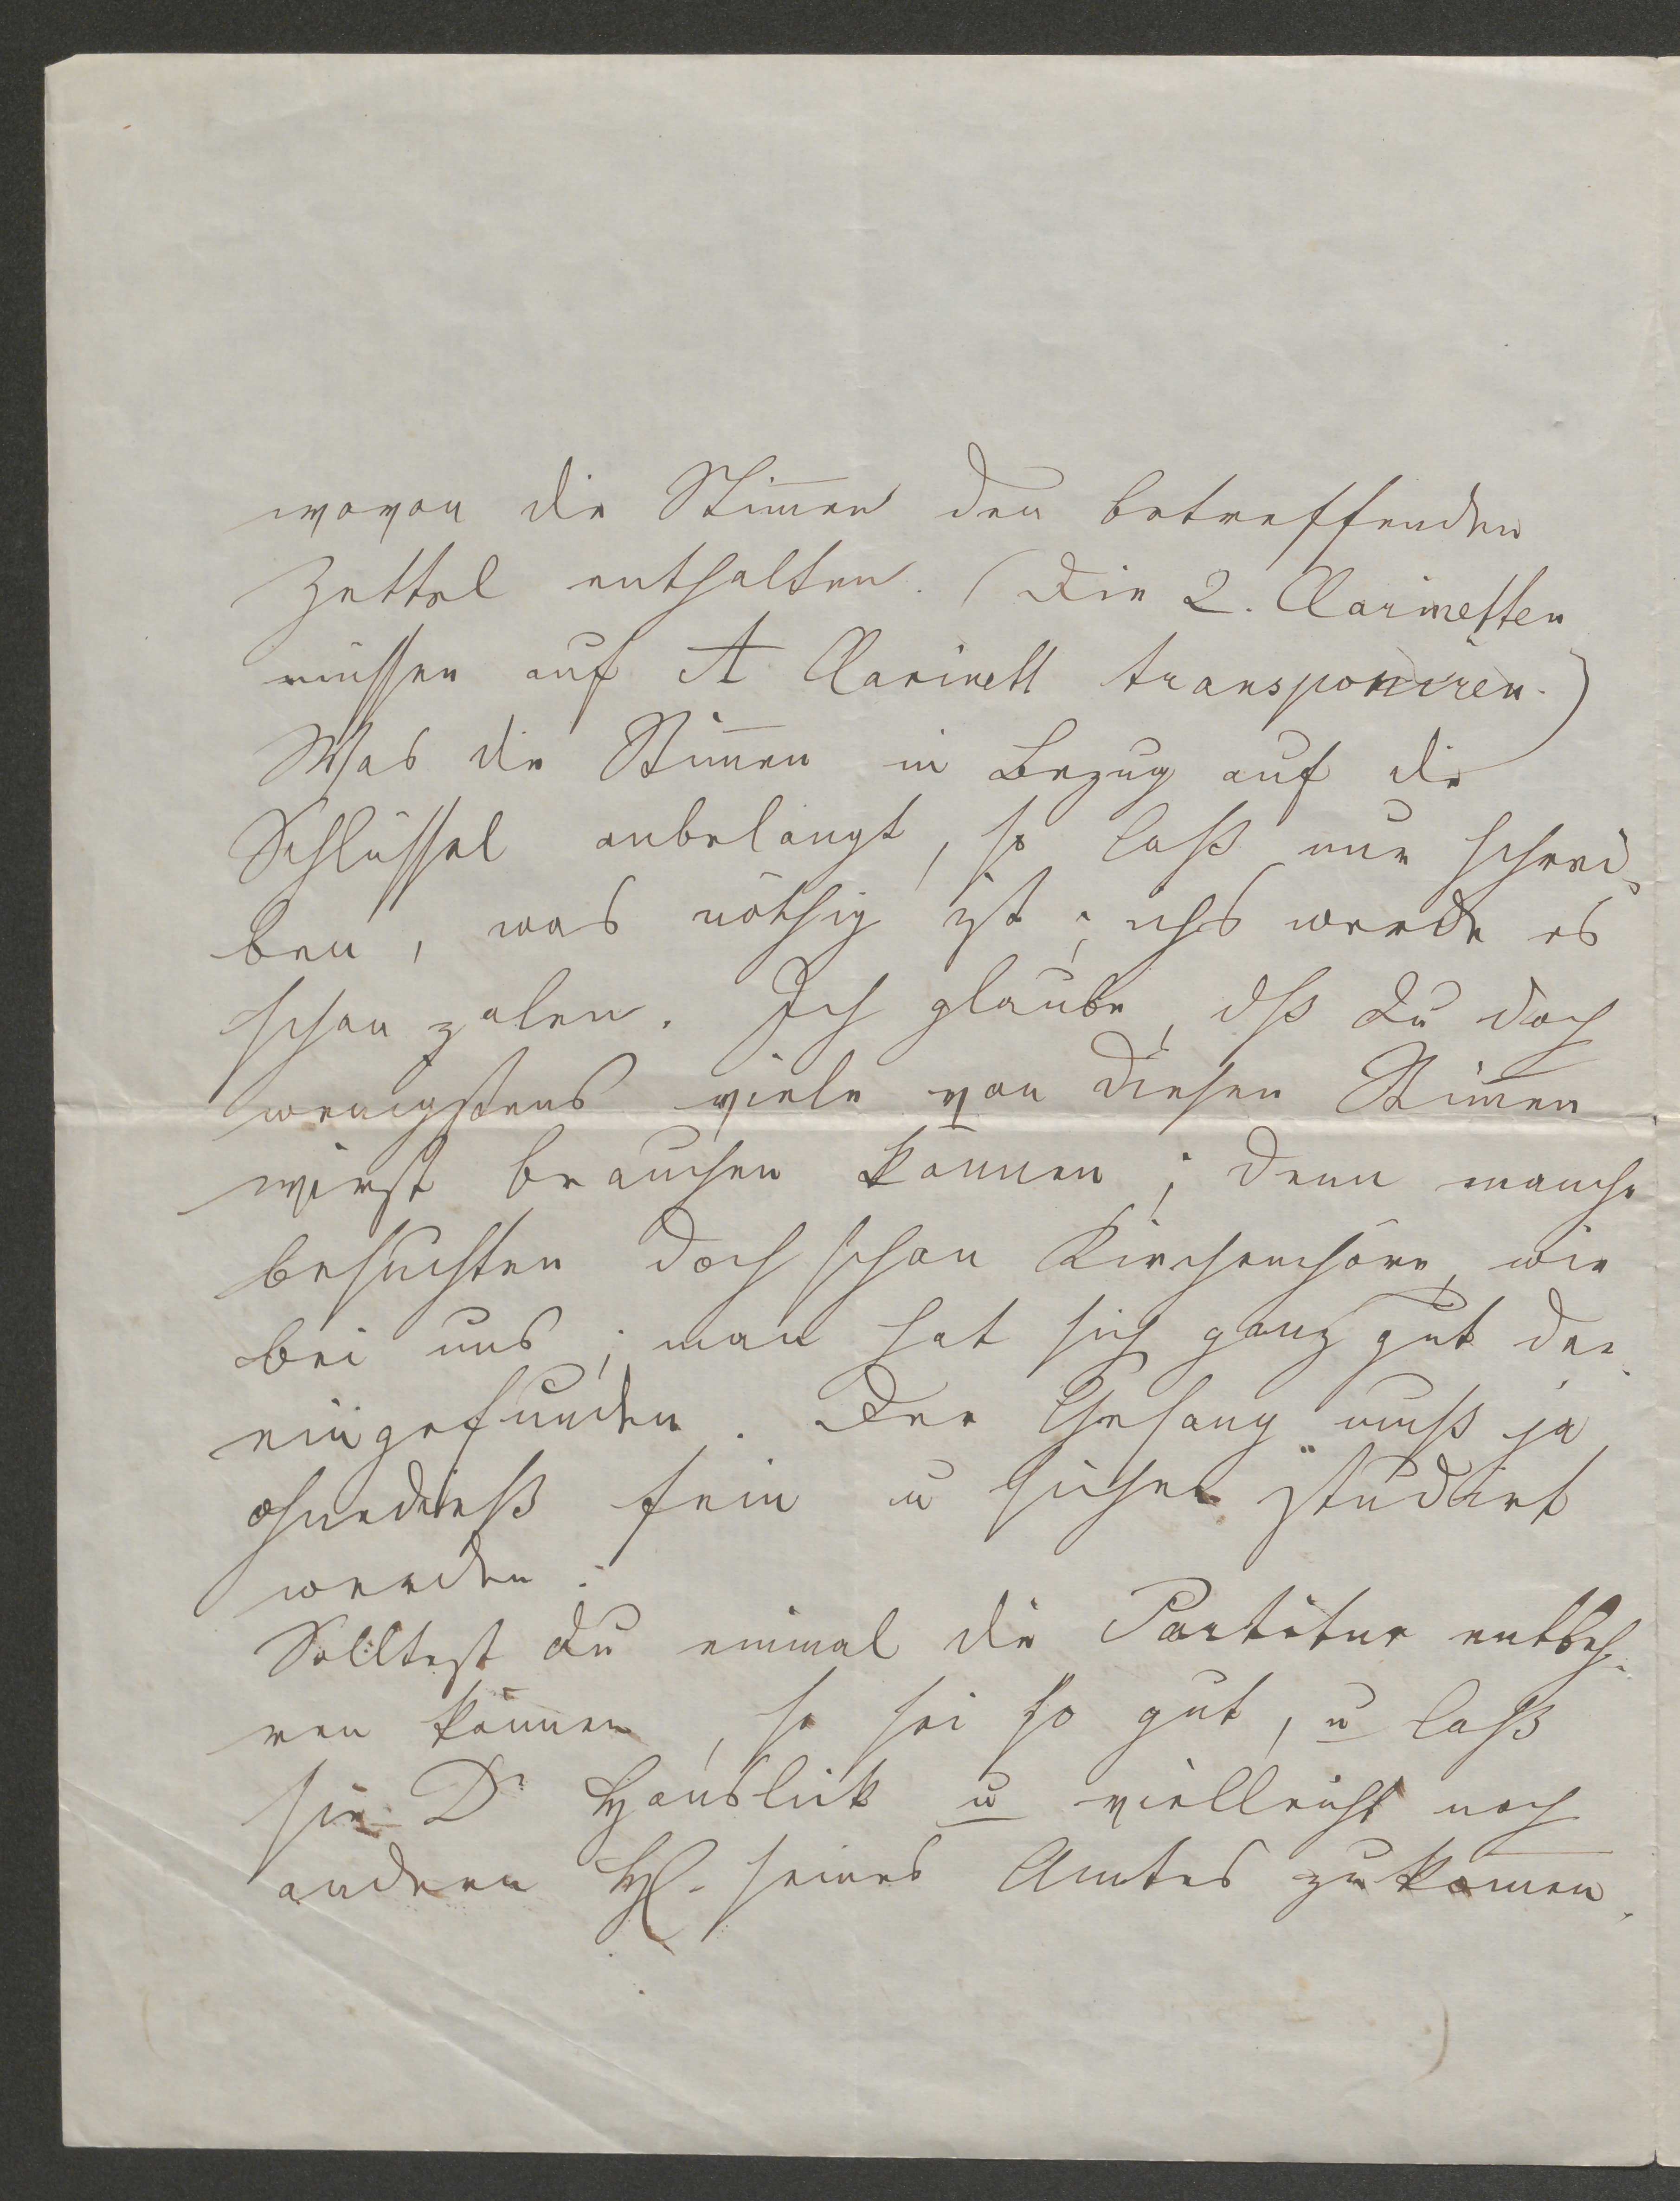 wovon die Stim̄en den betreffenden
Zettel enthalten. (Die 2. Clarinetten
müssen auf A Clarinett transponiren.)
Was die Stim̄en in Bezug auf die
Schlüssel anbelangt, so laß nur schrei-
ben, was nöthig ist; ichs werde es
schon zalen. Ich glaube, dß Du doch
wenigstens viele von diesen Stim̄en
wirst brauchen können; denn manche
besuchten doch schon Kirchenchöre, wie
bei uns; man hat sich ganz gut dar-
eingefunden. Der Gesang muß ja
ohnedieß fein u sicher studirt
werden.
Solltest Du einmal die Partitur entbeh-
ren können, so sei so gut, u laß
sie Dr Hanslick u vielleicht noch
andern H. seines Amtes zukom̄en.